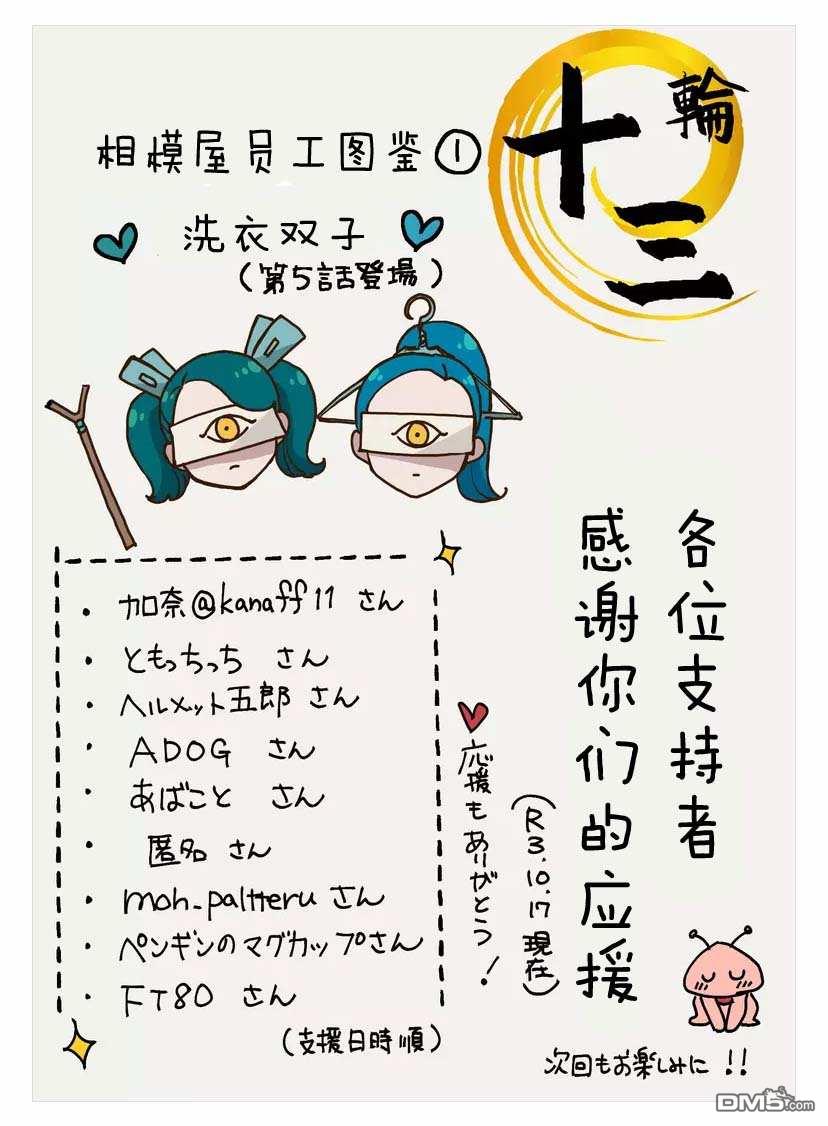 十三輪
相模屋员工图鉴①
洗衣双子
(第5話登場)
各位支持者
感谢你们的应援
(R3.10.17現在)
応援もありがとう!
・加奈@kanaff11 さん
・ともっちっち さん
・ヘルメット五郎 さん
・ADOG さん
・あばこと さん
・匿名 さん
・moh_paltteru さん
・ペンギンのマグカップさん
・FT80 さん
(支援日時順)
次回もお楽しみに!!
DM5.com